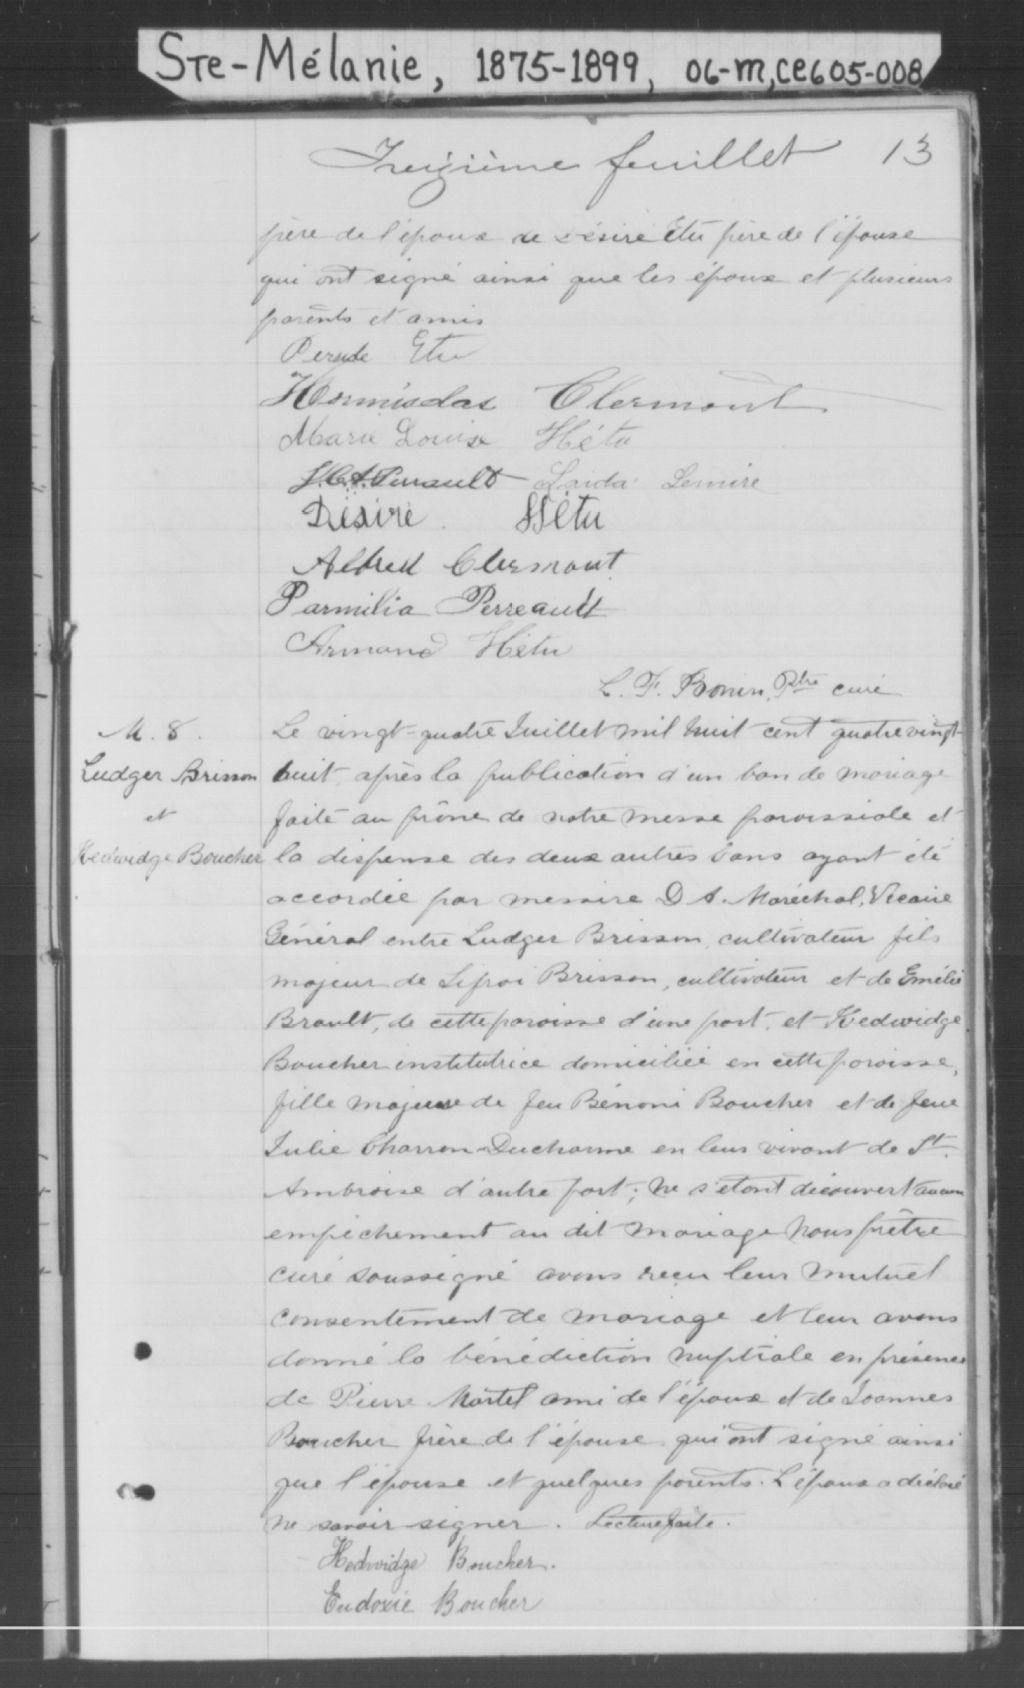 Ste-Mélanie, 1875-1899, 06-M,CE605-008
Treizième feuillet 13
père de l'époux de Désiré Etu père de l'épouse
qui ont signé ainsi que les époux et plusieurs
parents et amis
Etu
Hormisdas Clermont
Marie Louise Hétu
Perrault Laida Lemire
Désiré Hétu
Alfred Clermont
Parmilia Perreault
Armand Hétu
L. F. Bonin, Ptre curé
M. 8.
Ludger Brisson
et
Hedwidge Boucher
Le vingt-quatre Juillet mil huit cent quatrevingt
huit, après la publication d'un ban de mariage
faite au prône de notre messe paroissiale et
la dispense des deux autres bans ayant été
accordée par messire D A. Maréchal, Vicaire
Général entre Ludger Brisson, cultivateur fils
majeur de Sifroi Brisson, cultivateur et de Emélie
Brault, de cette paroisse d'une part, et Hedwidge
Boucher institutrice domiciliée en cette paroisse,
fille majeure de feu Bénoni Boucher et de feue
Julie Charron-Ducharme en leur vivant de St.
Ambroise d'autre part; ne s'étant découvert aucun
empêchement au dit mariage Nous prêtre
curé soussigné avons reçu leur mutuel
consentement de mariage et leur avons
donné la bénédiction nuptiale en présence
de Pierre Martel ami de l'époux et de Joannes
Boucher frère de l'épouse qui ont signé ainsi
que l'épouse et quelques parents. L'époux a déclaré
ne savoir signer. Lecture faite.
Hedwidge Boucher.
Eudoxie Boucher